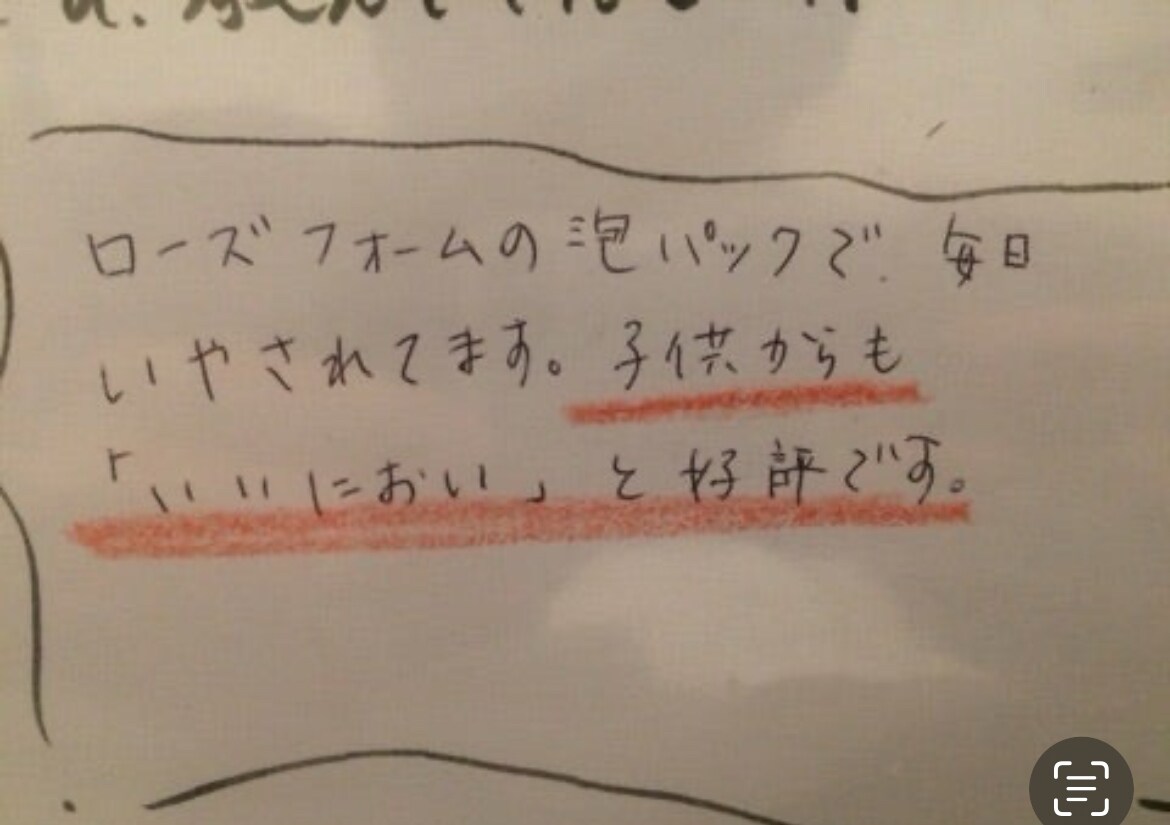 ローズフォームの泡パックで、毎日
いやされてます。子供からも
「いいにおい」と好評です。